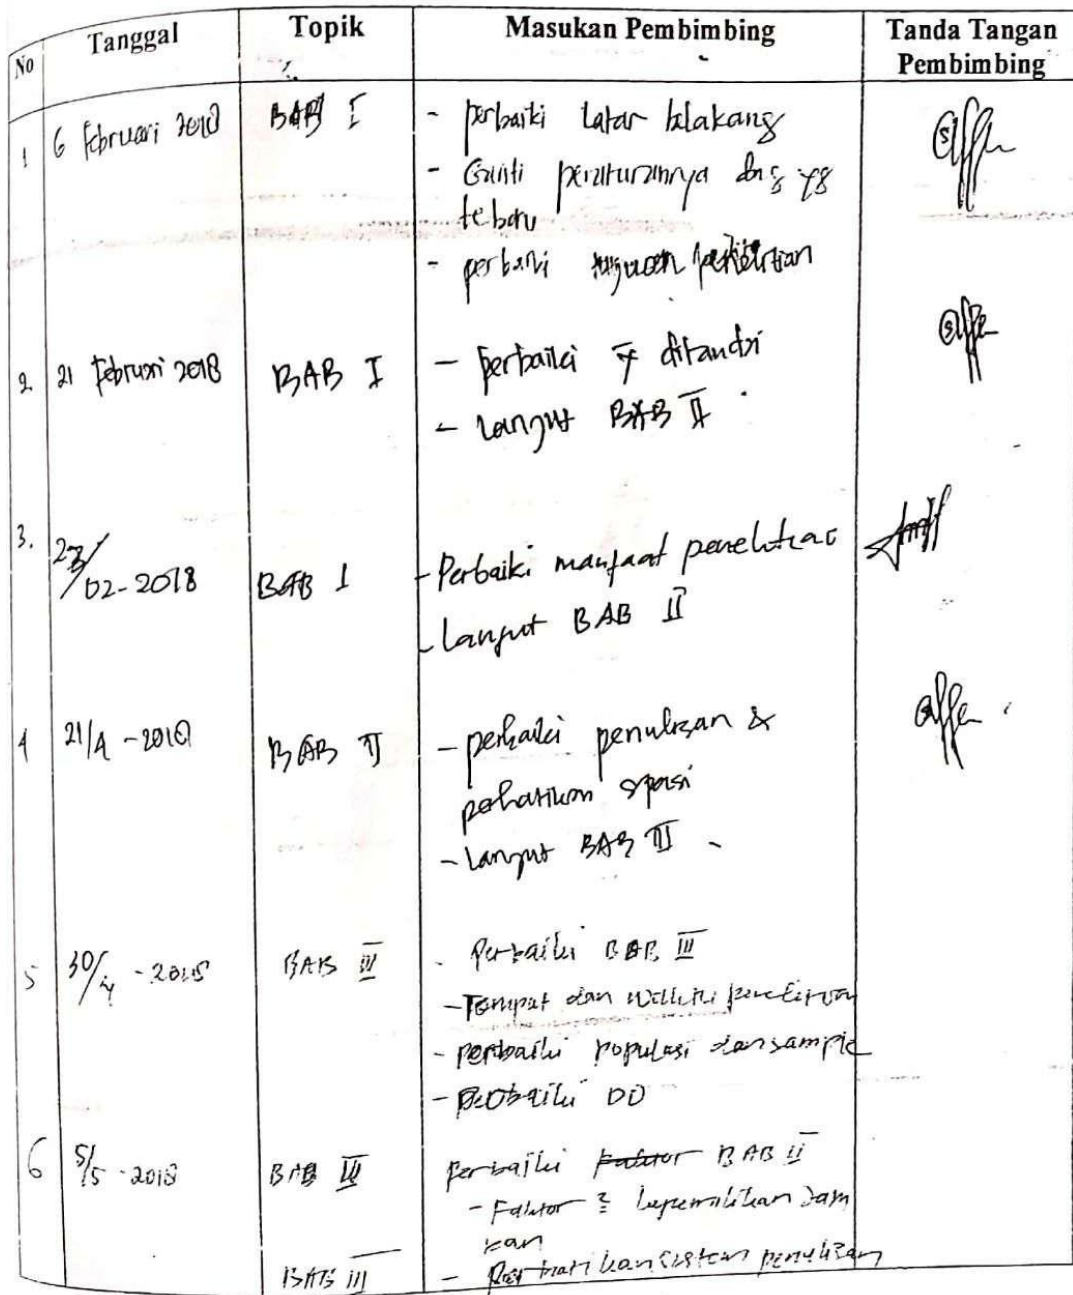 No Tanggal Topik Masukan Pembimbing Tanda Tangan Pembimbing
1 6 Februari 2018 BAB I - perbaiki latar belakang
- Ganti peraturannya dng yg
tebaru
- perbaiki penelitian
2. 21 Februari 2018 BAB I - perbaiki yg ditandai
- Lanjut BAB II
3. 23/02-2018 BAB I - Perbaiki manfaat penelitian
- Lanjut BAB II
4 21/4 -2018 BAB II - perbaiki penulisan &
perhatikan spasi
- Lanjut BAB III
5 30/4 -2018 BAB III - Perbaiki BAB III
- Tempat dan waktu penelitian
- perbaiki populasi dan sample
- perbaiki DO
6 5/5 -2018 BAB III perbaiki BAB II
- Faktor kepemilikan Jam
ban
BAB III - penulisan